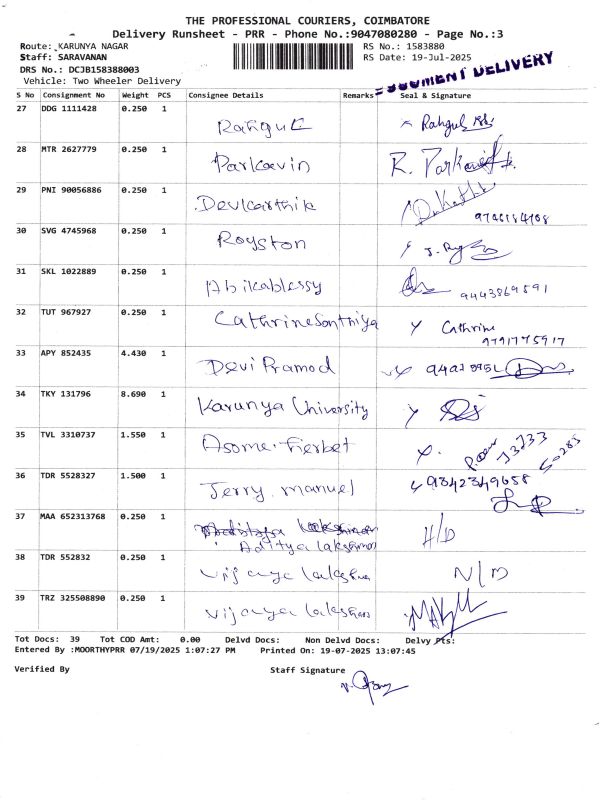 THE PROFESSIONAL COURIERS, COIMBATORE
Delivery Runsheet - PRR - Phone No.:9047080280 - Page No.:3
Route: KARUNYA NAGAR RS No.: 1583880
Staff: SARAVANAN RS Date: 19-Jul-2025
DRS No.: DCJB158388003
Vehicle: Two Wheeler Delivery
DOCUMENT DELIVERY
S No Consignment No Weight PCS Consignee Details Remarks Seal & Signature
27 DDG 1111428 0.250 1
Rahgul x Rahgul
28 MTR 2627779 0.250 1
Parkavin R. Parkavi
29 PNI 90056886 0.250 1
Devikarthik
30 SVG 4745968 0.250 1
Royston
31 SKL 1022889 0.250 1
Abikablessy 9443869591
32 TUT 967927 0.250 1
Cathrine Sonthiya Cathrine
9791775917
33 APY 852435 4.430 1
Devi Pramod
34 TKY 131796 8.690 1
Karunya University
35 TVL 3310737 1.550 1
Asome. Fierbet
36 TDR 5528327 1.500 1
Jerry. manuel 9342349658
37 MAA 652313768 0.250 1
Aditya lakshman H/D
38 TDR 552832 0.250 1
Vijaya lakshmi N/D
39 TRZ 325508890 0.250 1
Vijaya lakshmi
Tot Docs: 39 Tot COD Amt: 0.00 Delvd Docs: Non Delvd Docs: Delvy Pts:
Entered By :MOORTHYPRR 07/19/2025 1:07:27 PM Printed On: 19-07-2025 13:07:45
Verified By Staff Signature